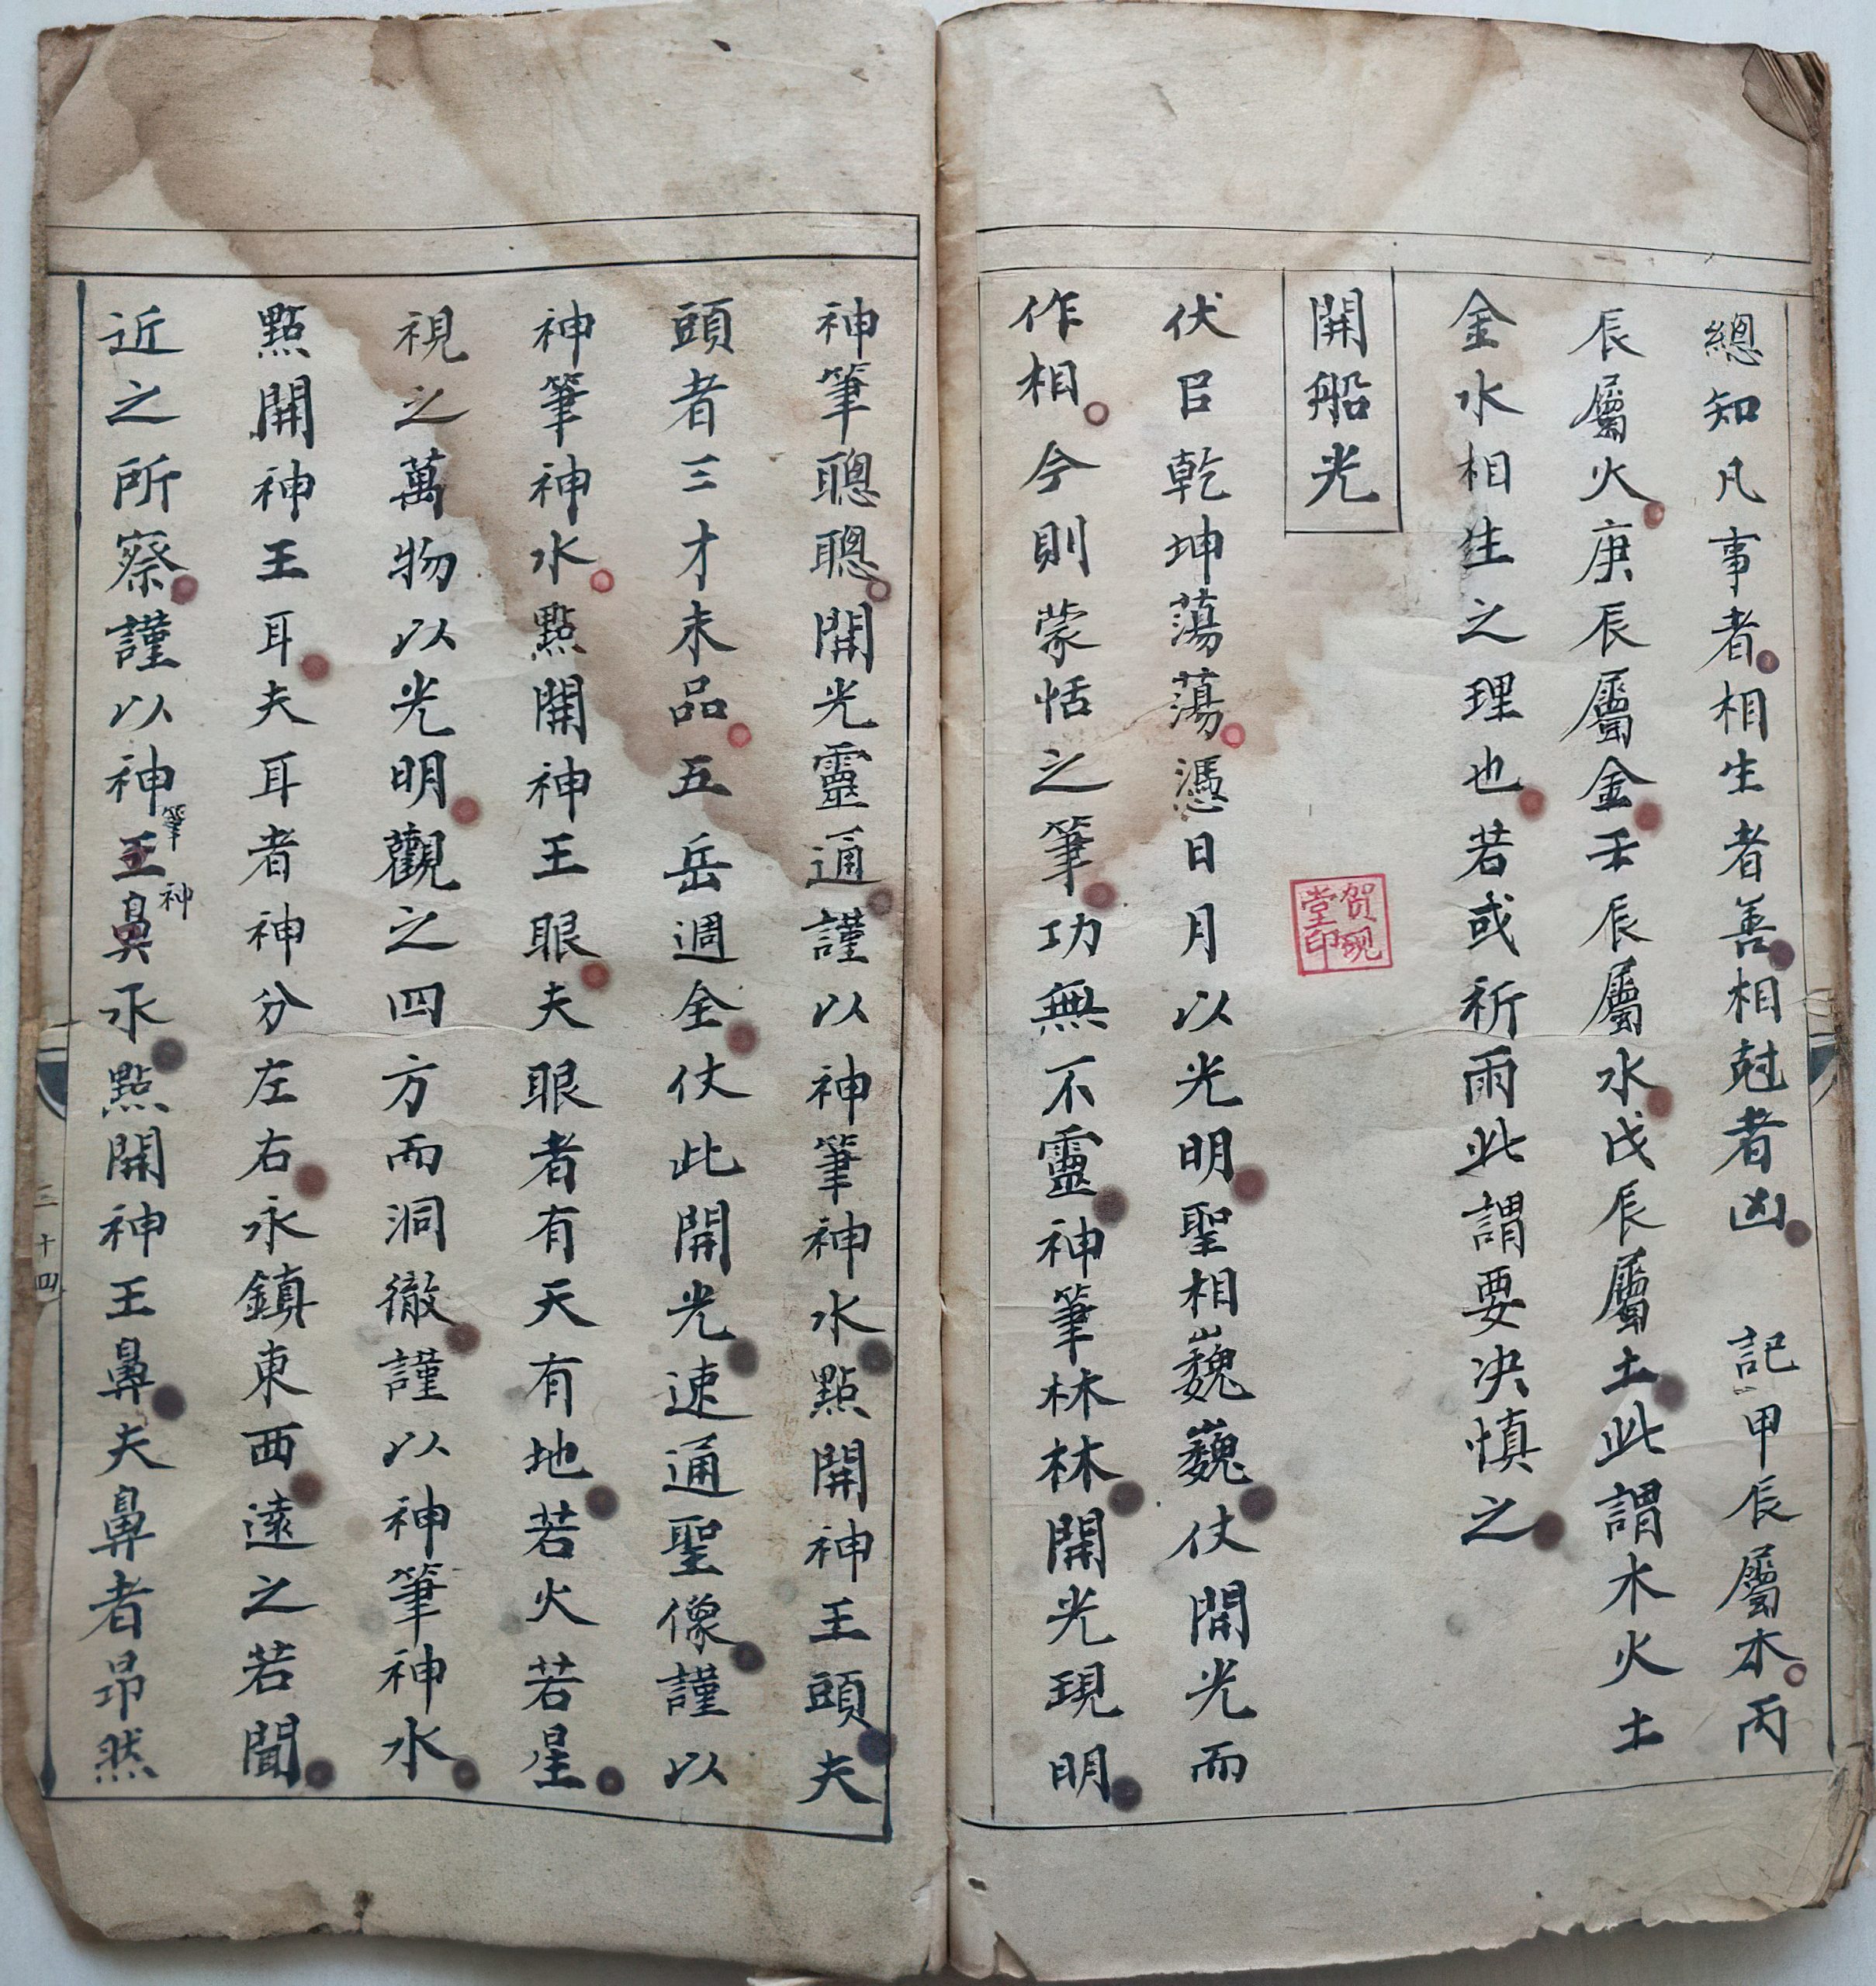 總知凡事者相生者善相尅者凶 記甲辰屬木丙
辰屬火庚辰屬金壬辰屬水戊辰屬土此謂木火土
金水相生之理也若或祈雨此謂要决慎之
開船光
賀硯堂印
伏㠯乾坤蕩蕩憑日月以光明聖相巍巍仗開光而
作相今則蒙恬之筆功無不靈神筆林林開光現明
神筆聰聰開光靈通謹以神筆神水點開神王頭夫
頭者三才末品五岳週全仗此開光速通聖像謹以
神筆神水點開神王眼夫眼者有天有地若火若星
視之萬物以光明觀之四方而洞徹謹以神筆神水
點開神王耳夫耳者神分左右永鎮東西遠之若聞
近之所察謹以神筆神水點開神王鼻夫鼻者昂然
三十四